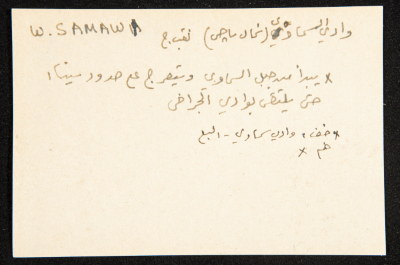 W. SAMAWA
وادي السماوي (شمال
يبدأ من جبل السماوي ويتعرج مع حدود سيناء
حتى يلتقي بوادي الجرافي
وادي سماوي - البلع